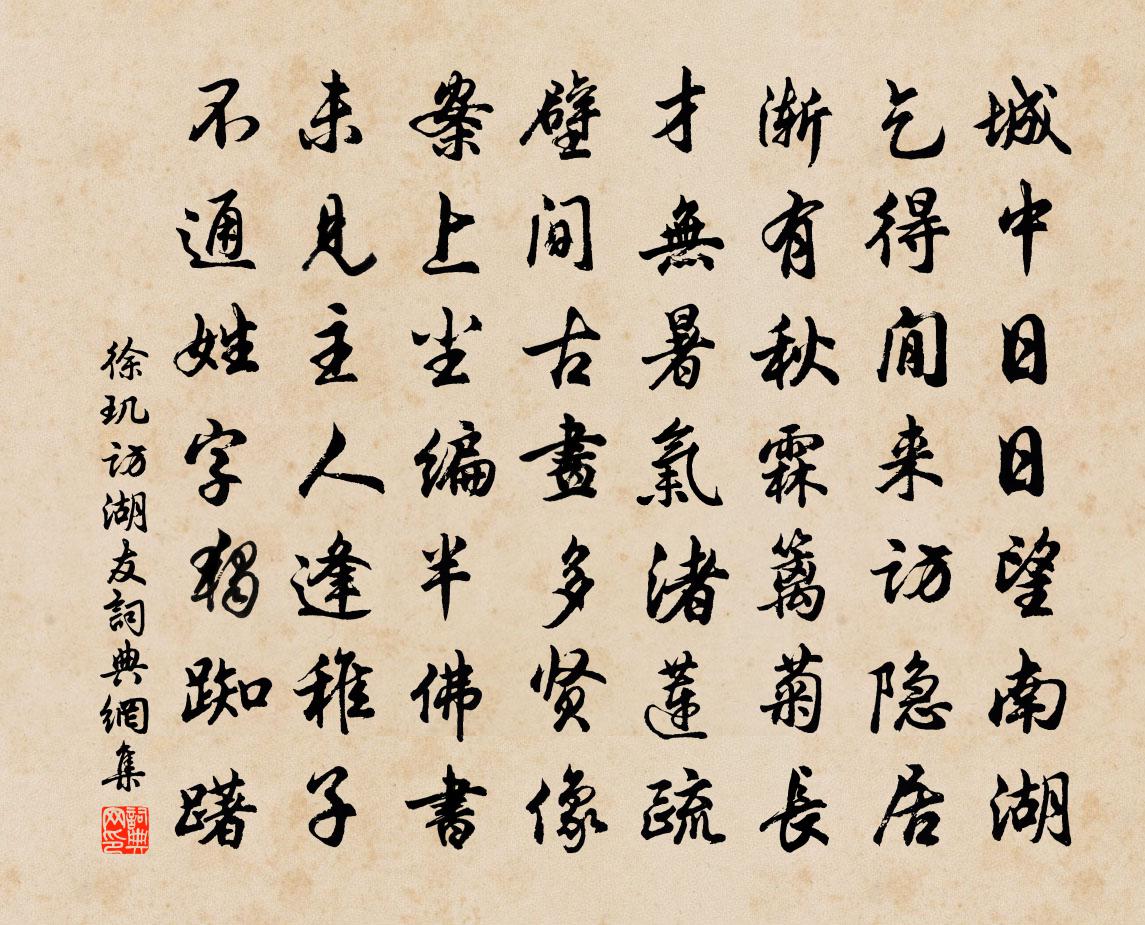 城中日日望南湖
乞得閒来访隐居
渐有秋霖篱菊长
才無暑氣渚莲疏
壁间古畫多贤像
案上尘编半佛書
未見主人逢稚子
不通姓字独踟躇
徐玑访湖友詞典網集
詞典网印